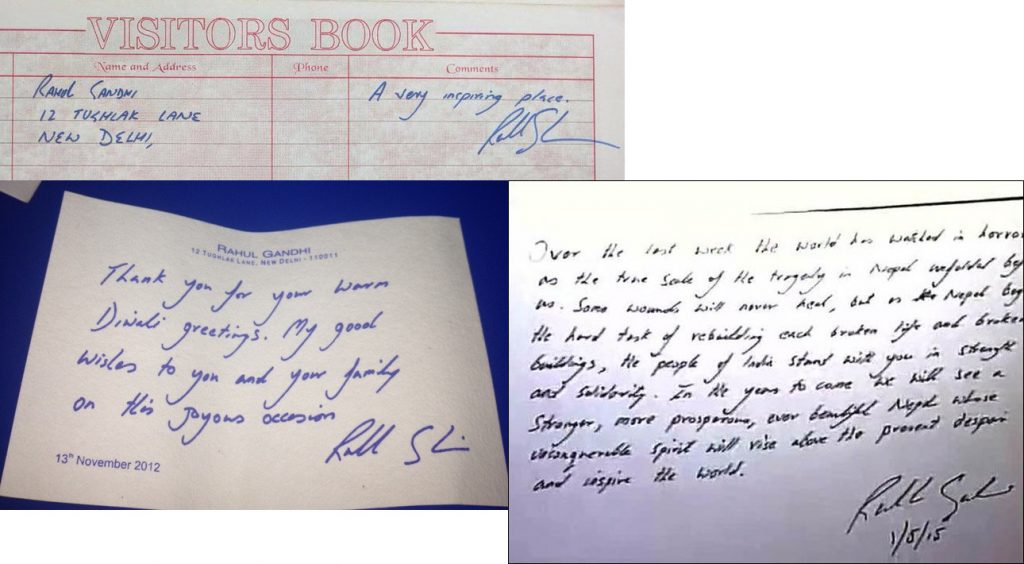 VISITORS BOOK
Name and Address Phone Comments
RAHUL GANDHI A very inspiring place.
12 TUGHLAK LANE
NEW DELHI,
RAHUL GANDHI
12 TUGHLAK LANE, NEW DELHI - 110011
Thank you for your warm
Diwali greetings. My good
wishes to you and your family
on this joyous occasion
13th November 2012
Over the last week the world has watched in horror
as the true scale of the tragedy in Nepal unfolded
us. Some wounds will never heal, but as the Nepal
the hard task of rebuilding each broken life and broken
buildings, the people of India stand with you in strength
and solidarity. In the years to come we will see a
stronger, more prosperous, ever beautiful Nepal whose
unconquerable spirit will rise above the present despair
and inspire the world.
1/5/15